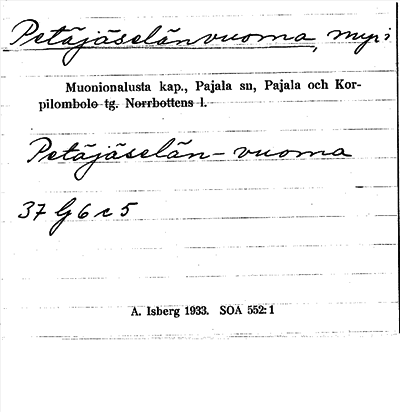 Petäjäselänvuoma, myr:
Muonionalusta kap., Pajala sn, Pajala och Kor-
pilombolo tg. Norrbottens l.
Petäjäselän-vuoma
37 G 6 c 5
A. Isberg 1933. SOA 552:1